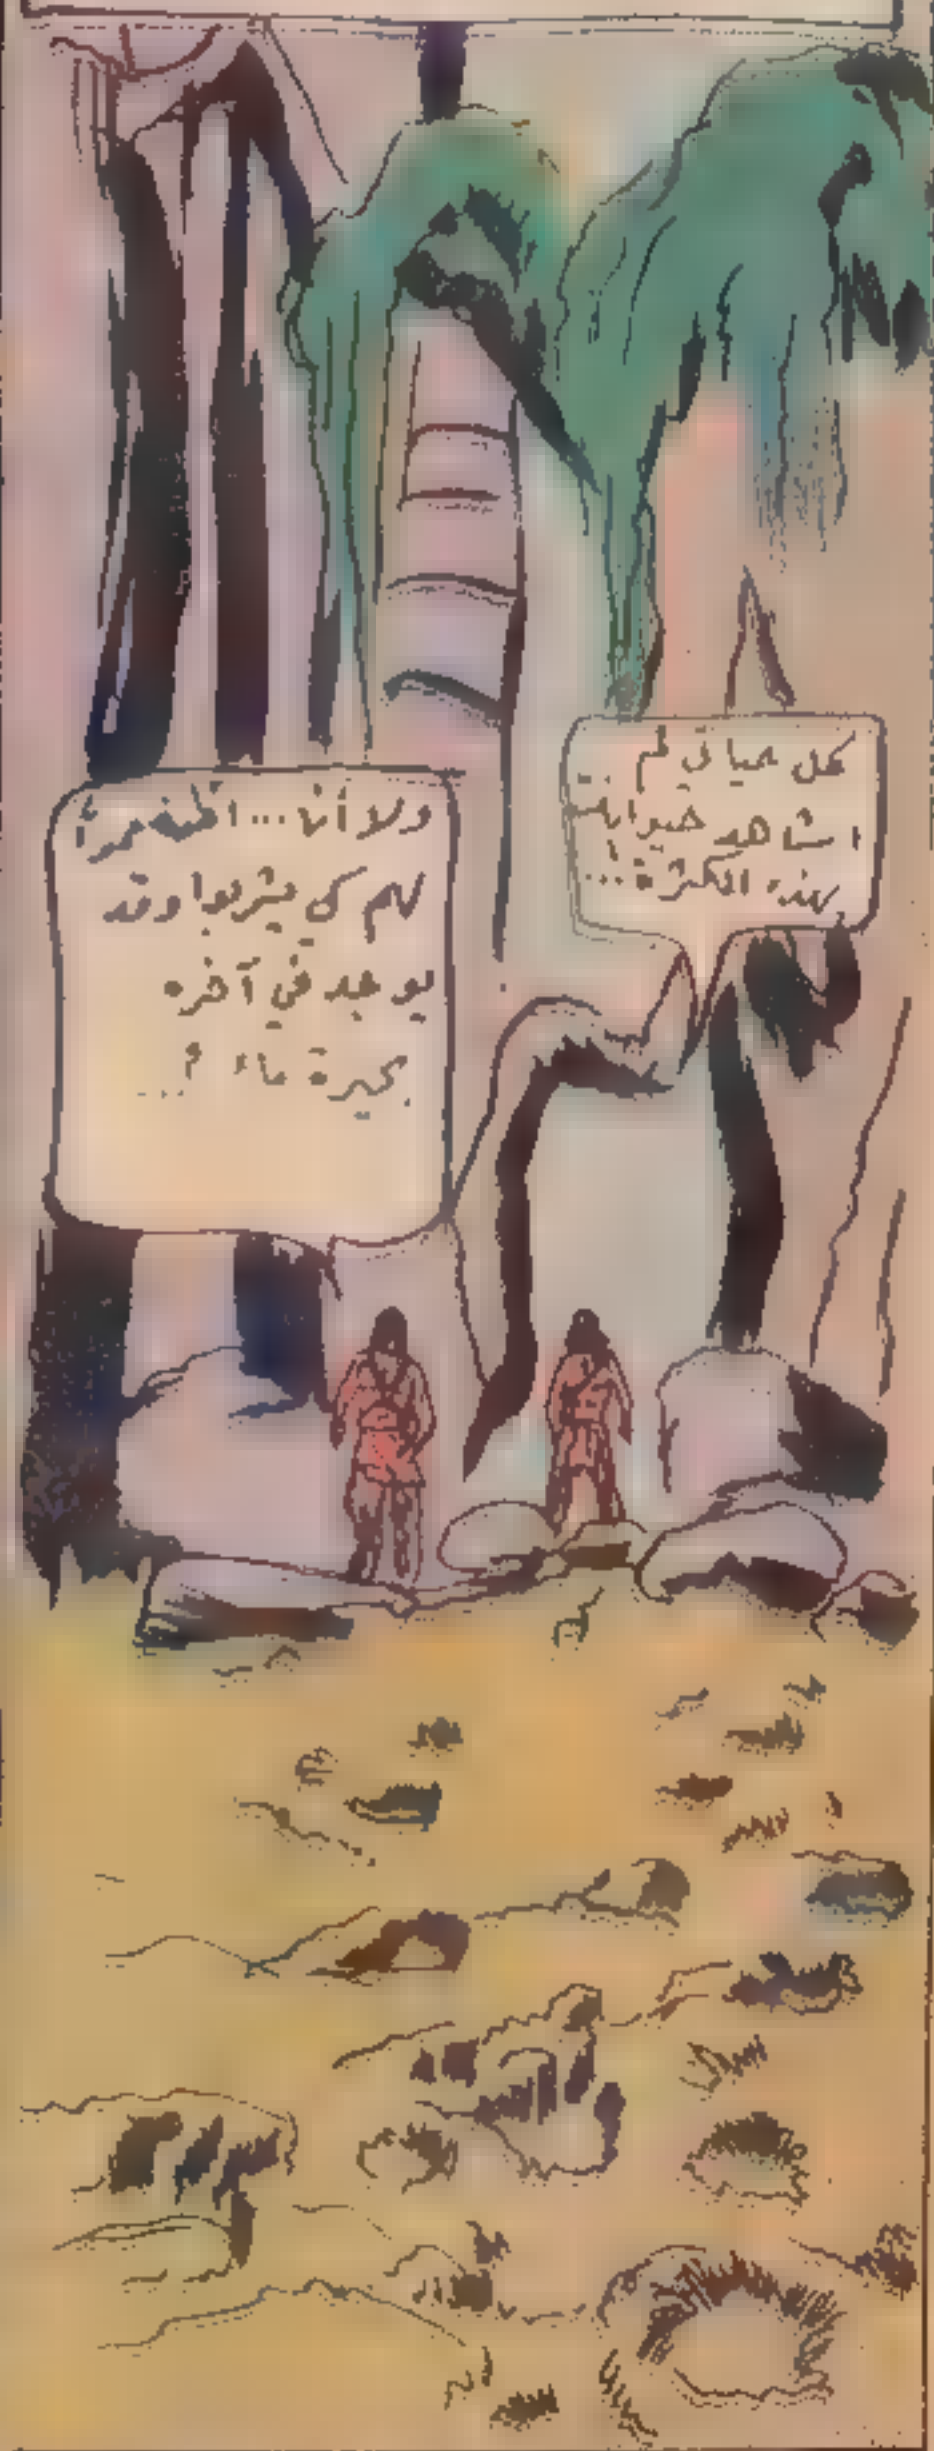 كل حياتي لم
اشاهد حيوانات
بهذه الكثرة...
ولا أنا... اظنه ممرًا
لهم كي يشربوا وقد
يوجد في آخره
بحيرة ماء ؟...